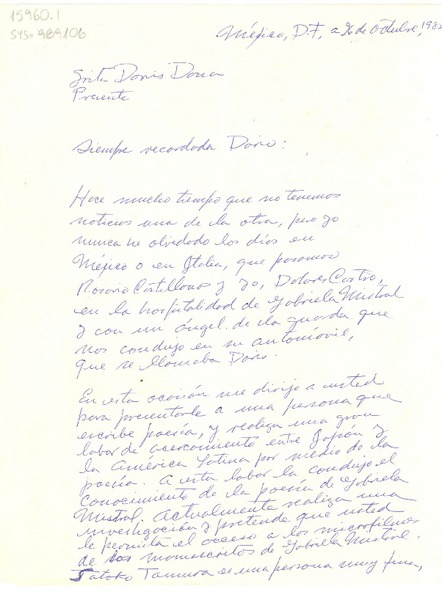 15960.1
SYS= 989106
México, D.F., a 26 de Octubre, 198
Srita Doris Dana
Presente
Siempre recordada Doris:
Hace mucho tiempo que no tenemos
noticias una de la otra, pero yo
nunca he olvidado los días en
México o en Italia, que pasamos
Rosario Castellanos y yo, Dolores Castro,
en la hospitalidad de Gabriela Mistral
y con un ángel de la guarda que
nos condujo en su automóvil,
que se llamaba Doris.
En esta ocasión me dirijo a usted
para presentarle a una persona que
escribe poesía, y realiza una gran
labor de acercamiento entre Japón y
la América Latina por medio de la
poesía. A esta labor la condujo el
conocimiento de la poesía de Gabriela
Mistral. Actualmente realiza una
investigación y pretende que usted
le permita el acceso a los microfilmes
de los manuscritos de Gabriela Mistral.
Satoko Tamura es una persona muy fina,